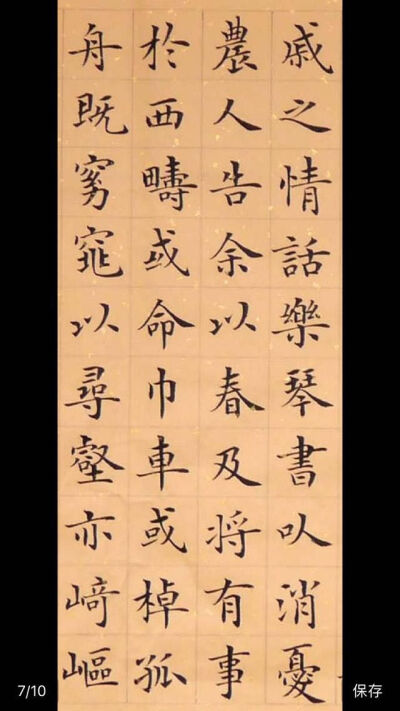 戚之情話樂琴書以消憂
農人告余以春及將有事
於西疇或命巾車或棹孤
舟既窈窕以尋壑亦崎嶇
7/10
保存